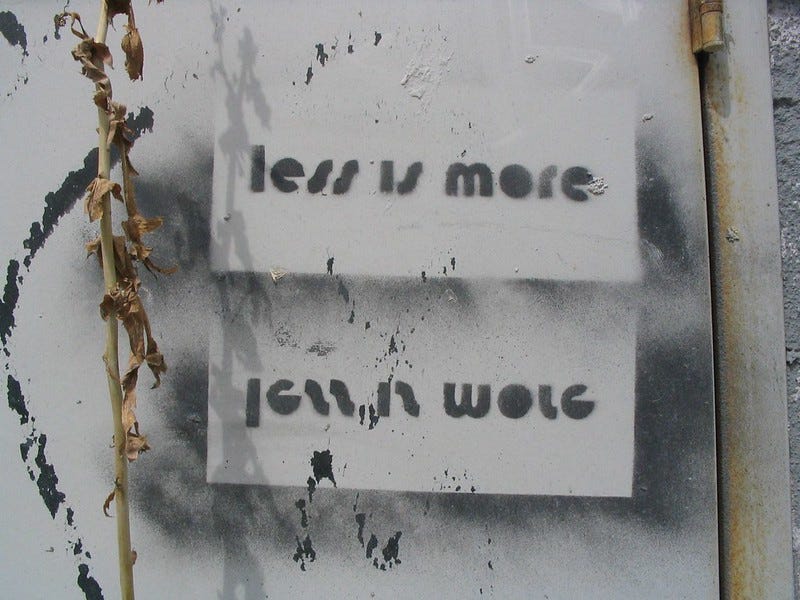 less is more
less is more